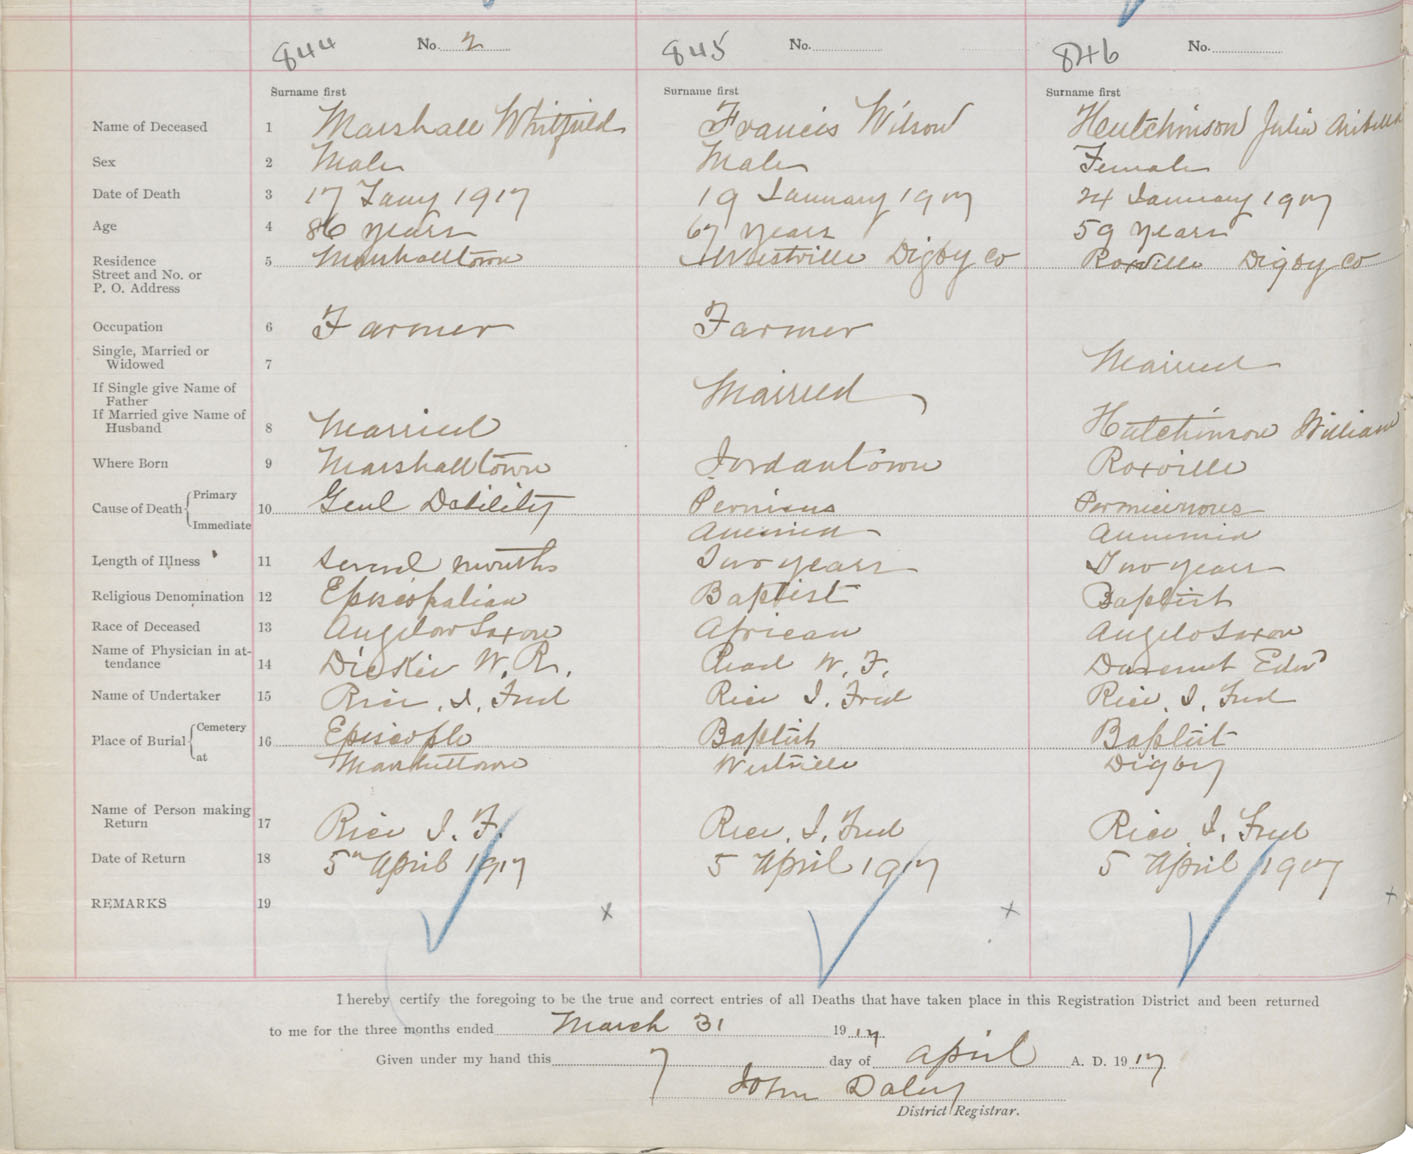 844 No. 2 845 No. 846 No.
Surname first Surname first Surname first
Name of Deceased 1 Marshall Whitfield Francis Wilson Hutchinson Julia Aribella
Sex 2 Male Male Female
Date of Death 3 17 Jany 1917 19 January 1917 24 January 1917
Age 4 86 years 67 years 59 years
Residence 5 Marshalltown Westville Digby Co Roxville Digby Co
Street and No. or
P. O. Address
Occupation 6 Farmer Farmer
Single, Married or
Widowed 7 Married
If Single give Name of
Father Married
If Married give Name of
Husband 8 Married Hutchinson William
Where Born 9 Marshalltown Jordantown Roxville
Cause of Death Primary 10 Genl Debility Pernicus Pernicinous
Immediate Anemia Annemia
Length of Illness 11 several months Two years Two years
Religious Denomination 12 Episcopalian Baptist Baptist
Race of Deceased 13 Angelow Saxon African Angelo Saxon
Name of Physician in at-
tendance 14 Dickie W. R. Read W. F. Edw
Name of Undertaker 15 Rice, I, Fred Rice I. Fred Rice, I, Fred
Place of Burial Cemetery 16 Episcople Baptist Baptist
at Marshalltown Westville Digby
Name of Person making
Return 17 Rice I. F. Rice, I, Fred Rice, I, Fred
Date of Return 18 5th April 1917 5 April 1917 5 April 1917
REMARKS 19 x x x
I hereby certify the foregoing to be the true and correct entries of all Deaths that have taken place in this Registration District and been returned
to me for the three months ended March 31 1917
Given under my hand this 7 day of April A. D. 1917
John Daley
District Registrar.